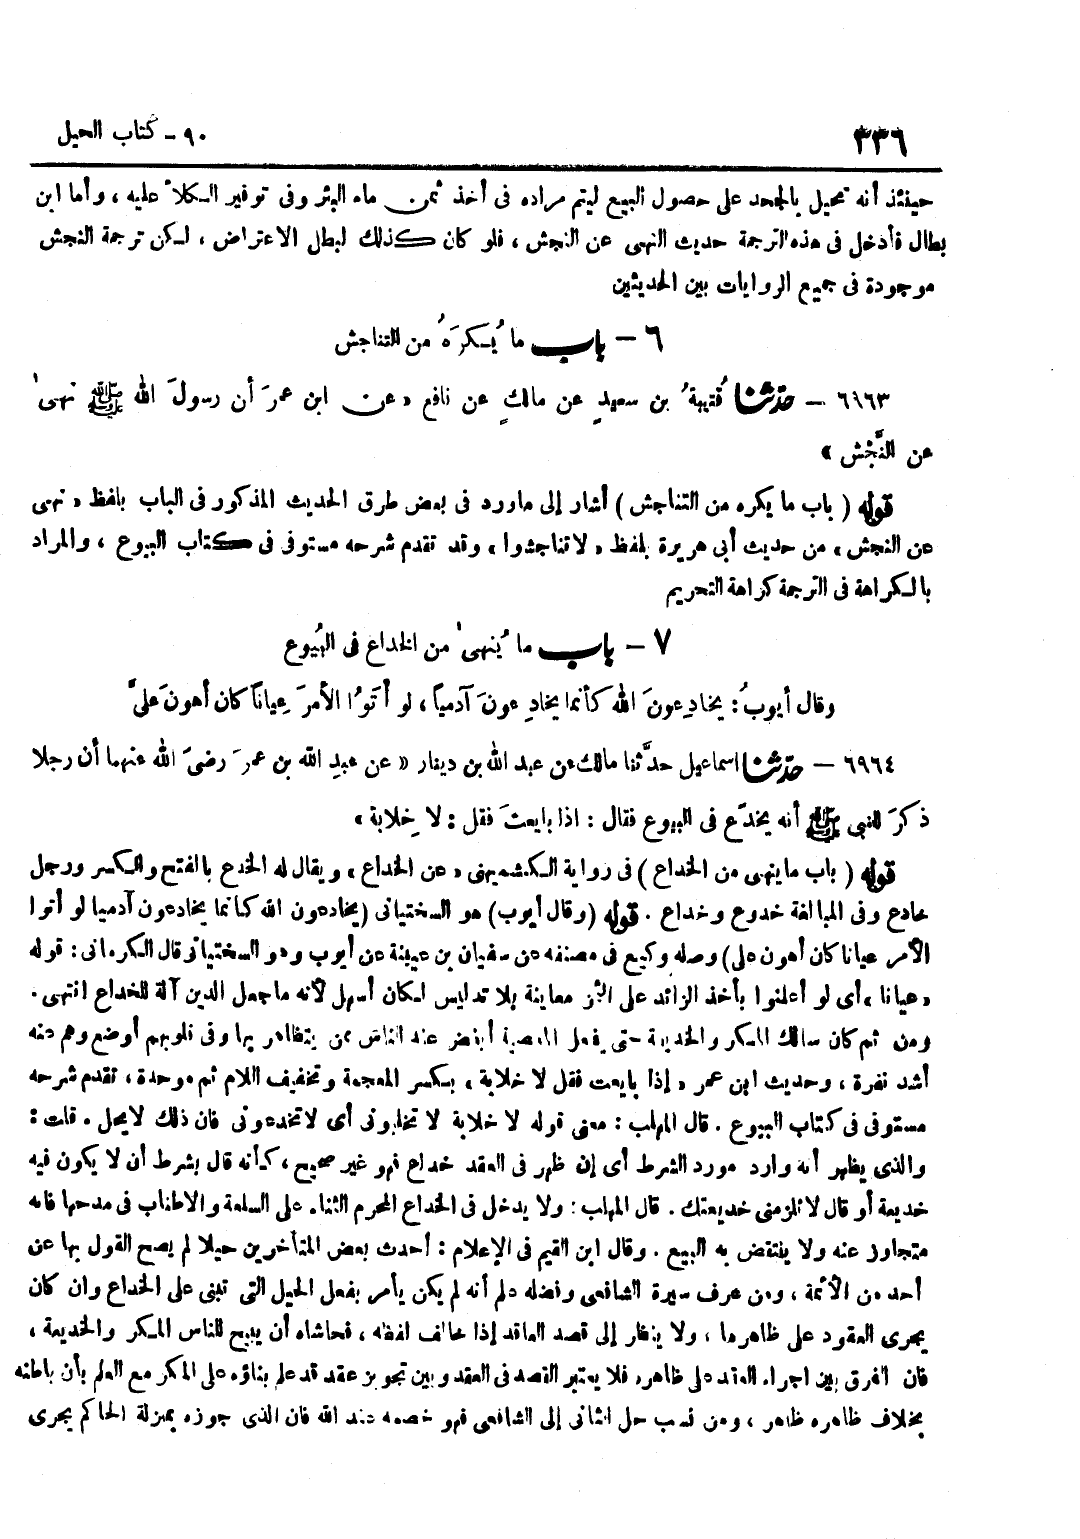 ٣٣٦
٩٠ - كتاب الحيل
حينئذ أنه تحيل بالجحد على حصول البيع ليتم مراده فى أخذ ثمن ماء البئر وفى توفير الكلأ عليه ، وأما ابن
بطال فأدخل فى هذه الترجمة حديث النهى عن النجش ، فلو كان كذلك لبطل الاعتراض ، لكن ترجمة النجش
موجودة فى جميع الروايات بين الحديثين
٦ - باب ما يُكرَهُ من التناجش
٦٩٦٣ - حدّثنا قُتيبةُ بن سعيدٍ عن مالكٍ عن نافع « عن ابن عمرَ أن رسولَ الله ﷺ نهىٰ
عن النَّجْش »
قوله ( باب ما يكره من التناجش ) أشار إلى ماورد فى بعض طرق الحديث المذكور فى الباب بلفظ « نهى
عن النجش » من حديث أبى هريرة بلفظ « لا تناجشوا » وقد تقدم شرحه مستوفى فى كتاب البيوع ، والمراد
بالكراهة فى الترجمة كراهة التحريم
٧ - باب ما يُنهىٰ من الخداع فى البُيوع
وقال أيوبُ : يخادِعونَ الله كأنما يخادِعونَ آدمياً ، لو أتَوُا الأمرَ عِياناً كان أهونَ علىَّ
٦٩٦٤ - حدّثنا اسماعيل حدَّثنا مالك عن عبد الله بن دينار « عن عبدِ الله بن عمرَ رضىَ الله عنهما أن رجلا
ذكرَ للنبى ﷺ أنه يخدَع فى البيوع فقال : اذا بايعتَ فقل : لا خِلابة »
قوله ( باب ما ينهى من الخداع ) فى رواية الكشميهنى « عن الخداع » ويقال له الخدع بالفتح والكسر ورجل
خادع وفى المبالغة خدوع وخداع . قوله (وقال أيوب) هو السختيانى (يخادعون الله كانما يخادعون آدميا لو أتوا
الأمر عيانا كان أهون على) وصله وكيع فى مصنفه عن سفيان بن عيينة عن أيوب وهو السختيانى قال الكرمانى : قوله
« عيانا » أى لو أعلنوا بأخذ الزائد على الثمن معاينة بلا تدليس لكان أسهل لأنه ما جعل الدين آلة للخداع انتهى .
ومن ثم كان سالك المكر والخديعة حتى يفعل المعصية أبغض عند الناس ممن يتظاهر بها وفى قلوبهم أوضع وهم منه
أشد نفرة ، وحديث ابن عمر « إذا بايعت فقل لا خلابة » بكسر المعجمة وتخفيف اللام ثم موحدة ، تقدم شرحه
مستوفى فى كتاب البيوع . قال المهلب : معنى قوله لا خلابة لا تخلبونى أى لا تخدعونى فان ذلك لايحل . قلت :
والذى يظهر أنه وارد مورد الشرط أى إن ظهر فى العقد خداع فهو غير صحيح ، كأنه قال بشرط أن لا يكون فيه
خديعة أو قال لا تلزمنى خديعتك . قال المهلب : ولا يدخل فى الخداع المحرم الثناء على السلعة والاطناب فى مدحها فانه
متجاوز عنه ولا ينتقض به البيع . وقال ابن القيم فى الإعلام : أحدث بعض المتأخرين حيلا لم يصح القول بها عن
أحد من الأئمة ، ومن عرف سيرة الشافعى وفضله علم أنه لم يكن يأمر بفعل الحيل التى تبنى على الخداع وان كان
يجرى العقود على ظاهرها ، ولا ينظر إلى قصد العاقد إذا خالف لفظه ، فحاشاه أن يبيح للناس المكر والخديعة ،
فان الفرق بين اجراء العقد على ظاهره فلا يعتبر القصد فى العقد وبين تجويز عقد قد علم بناؤه على المكر مع العلم بأن باطنه
بخلاف ظاهره ظاهر ، ومن نسب حل الثانى إلى الشافعى فهو خصمه عند الله فان الذى جوزه بمنزلة الحاكم يجرى